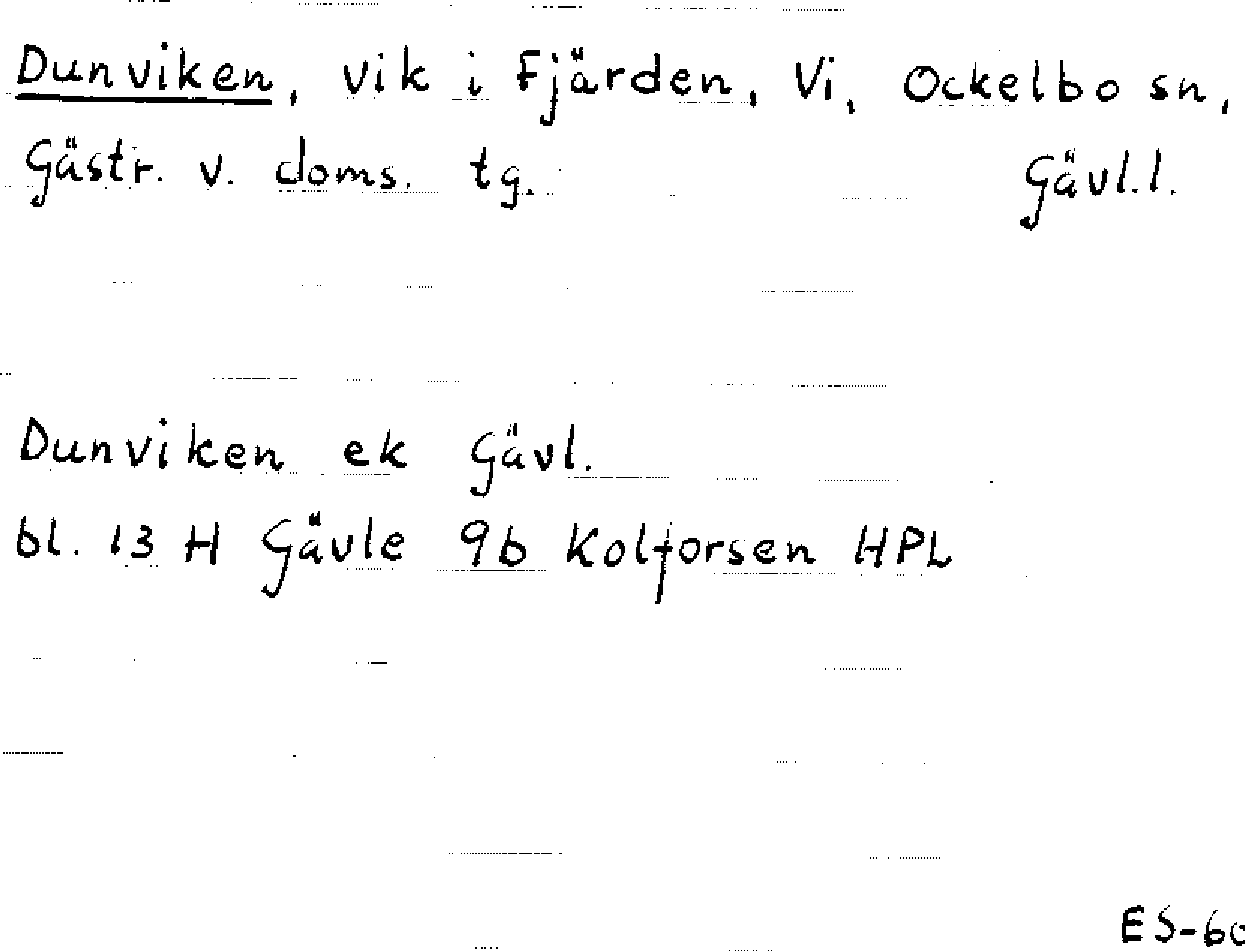 Dunviken, vik i Fjärden, Vi, Ockelbo sn,
Gästr. v. doms. tg. Gävl.l.
Dunviken ek Gävl.
bl. 13 H Gävle 9b Kolforsen HPL
ES-60